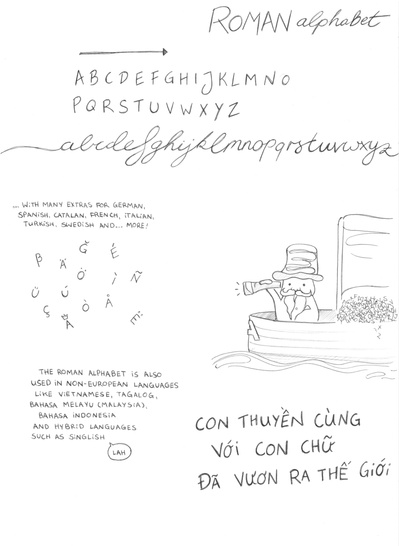 ROMAN alphabet
ABCDEFGHIJKLMNO
PQRSTUVWXYZ
abcdefghijklmnopqrstuvwxyz
... WITH MANY EXTRAS FOR GERMAN,
SPANISH, CATALAN, FRENCH, ITALIAN,
TURKISH, SWEDISH AND... MORE!
Ğ É
β Ä Ö Ì Ñ
Ü Ú Ò Å
Ç Ë
THE ROMAN ALPHABET IS ALSO
USED IN NON-EUROPEAN LANGUAGES
LIKE VIETNAMESE, TAGALOG,
BAHASA MELAYU (MALAYSIA),
BAHASA INDONESIA
AND HYBRID LANGUAGES
SUCH AS SINGLISH
LAH
CON THUYỀN CÙNG
VỚI CON CHỮ
ĐÃ VƯƠN RA THẾ GIỚI